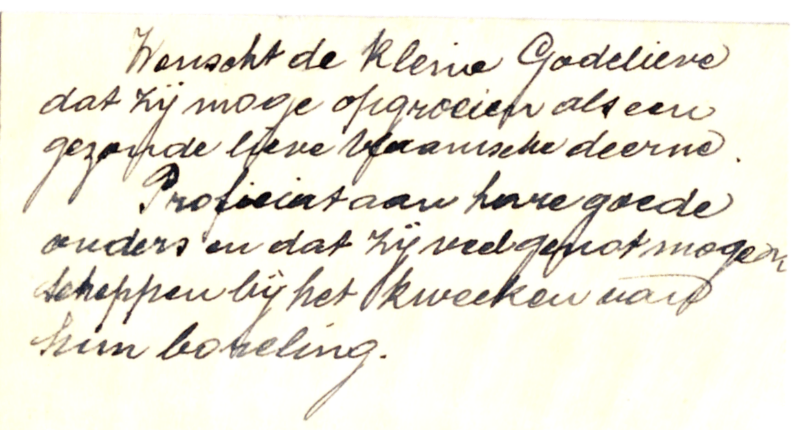 Wenscht de kleine Godelieve
dat zij moge opgroeien als een
gezonde lieve Vlaamsche deerne.
Proficiat aan hare goede
ouders en dat zij veel genot mogen
scheppen bij het kweeken van
hun boreling.